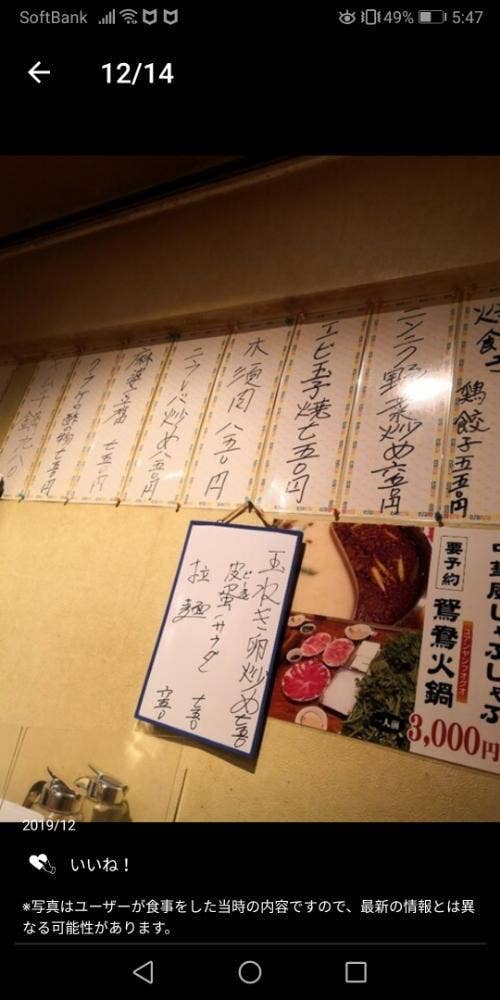 SoftBank
49%
5:47
12/14
鶏餃子 五五〇円
ニンニク野菜炒め 六五〇円
エビ玉子焼 七五〇円
木須肉 八五〇円
ニラレバ炒め 八五〇円
麻婆豆腐 七五〇円
クラゲの酢の物 七五〇円
玉ねぎ卵炒め 七五〇
皮蛋サラダ 七五〇
拉麺 六五〇
要予約
鴛鴦火鍋
ユアンヤンフオグオ
一人前
3,000円
2019/12
いいね！
※写真はユーザーが食事をした当時の内容ですので、最新の情報とは異
なる可能性があります。